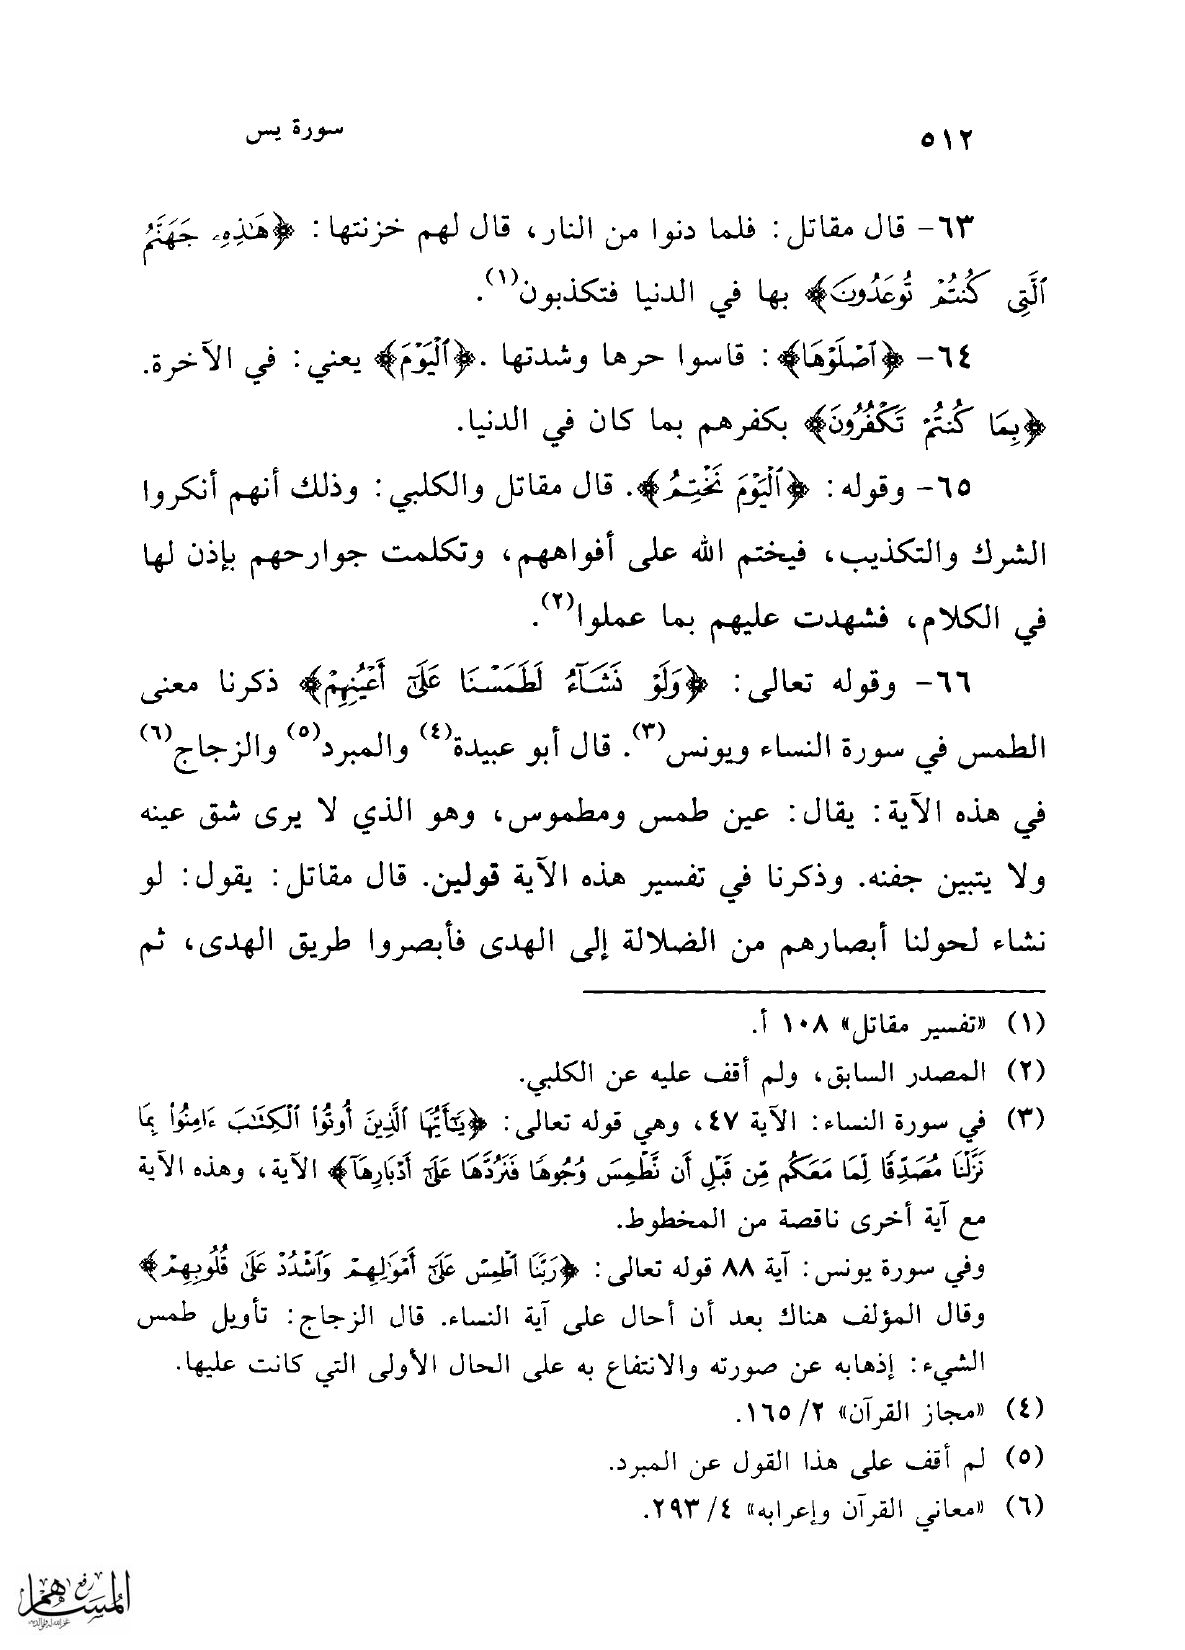 ٥١٢ سورة يس
٦٣- قال مقاتل: فلما دنوا من النار، قال لهم خزنتها: ﴿هَٰذِهِۦ جَهَنَّمُ
ٱلَّتِى كُنتُمْ تُوعَدُونَ﴾ بها في الدنيا فتكذبون(١).
٦٤- ﴿ٱصْلَوْهَا﴾: قاسوا حرها وشدتها .﴿ٱلْيَوْمَ﴾ يعني: في الآخرة.
﴿بِمَا كُنتُمْ تَكْفُرُونَ﴾ بكفرهم بما كان في الدنيا.
٦٥- وقوله: ﴿ٱلْيَوْمَ نَخْتِمُ﴾. قال مقاتل والكلبي: وذلك أنهم أنكروا
الشرك والتكذيب، فيختم الله على أفواههم، وتكلمت جوارحهم بإذن لها
في الكلام، فشهدت عليهم بما عملوا(٢).
٦٦- وقوله تعالى: ﴿وَلَوْ نَشَآءُ لَطَمَسْنَا عَلَىٰٓ أَعْيُنِهِمْ﴾ ذكرنا معنى
الطمس في سورة النساء ويونس(٣). قال أبو عبيدة(٤) والمبرد(٥) والزجاج(٦)
في هذه الآية: يقال: عين طمس ومطموس، وهو الذي لا يرى شق عينه
ولا يتبين جفنه. وذكرنا في تفسير هذه الآية قولين. قال مقاتل: يقول: لو
نشاء لحولنا أبصارهم من الضلالة إلى الهدى فأبصروا طريق الهدى، ثم
(١) «تفسير مقاتل» ١٠٨ أ.
(٢) المصدر السابق، ولم أقف عليه عن الكلبي.
(٣) في سورة النساء: الآية ٤٧، وهي قوله تعالى: ﴿يَٰٓأَيُّهَا ٱلَّذِينَ أُوتُوا۟ ٱلْكِتَٰبَ ءَامِنُوا۟ بِمَا
نَزَّلْنَا مُصَدِّقًا لِّمَا مَعَكُم مِّن قَبْلِ أَن نَّطْمِسَ وُجُوهًا فَنَرُدَّهَا عَلَىٰٓ أَدْبَارِهَآ﴾ الآية، وهذه الآية
مع آية أخرى ناقصة من المخطوط.
وفي سورة يونس: آية ٨٨ قوله تعالى: ﴿رَبَّنَا ٱطْمِسْ عَلَىٰٓ أَمْوَٰلِهِمْ وَٱشْدُدْ عَلَىٰ قُلُوبِهِمْ﴾
وقال المؤلف هناك بعد أن أحال على آية النساء. قال الزجاج: تأويل طمس
الشيء: إذهابه عن صورته والانتفاع به على الحال الأولى التي كانت عليها.
(٤) «مجاز القرآن» ٢/ ١٦٥.
(٥) لم أقف على هذا القول عن المبرد.
(٦) «معاني القرآن وإعرابه» ٤/ ٢٩٣.